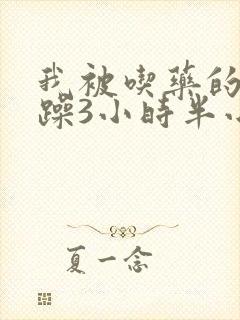 我被喫藥的
躁3小時半小
夏一念